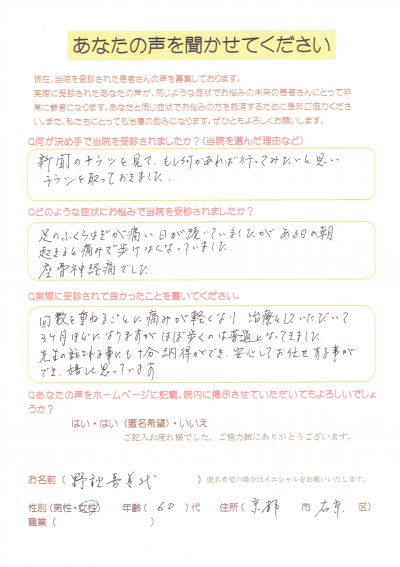 あなたの声を聞かせてください
現在、当院を受診された患者さんの声を募集しております。
実際に受診されたあなたの声が、同じような症状でお悩みの未来の患者さんにとって非
常に参考になります。あなたと同じ症状でお悩みの方を救済するために是非ご協力くださ
い。また、私たちにとっても治療の励みになります。ぜひともよろしくお願いします。
Q何が決め手で当院を受診されましたか?(当院を選んだ理由など)
新聞のチラシを見て、もし何かあれば行ってみたいと思い
チラシを取っておきました。
Qどのような症状にお悩みで当院を受診されましたか?
足のふくらはぎが痛い日が続いていましたがある日の朝
起きると痛みで歩けなくなっていました。
座骨神経痛でした。
Q実際に受診されて良かったことを書いてください。
回数を重ねるごとに痛みが軽くなり 治療をしていただいて
3ヶ月ほどになりますがほぼ歩くのは普通になってきました。
先生の話される事にも十分納得ができ、安心してお任せする事が
でき、嬉しく思っています。
Qあなたの声をホームページに記載、院内に掲示させていただいてもよろしいでしょ
うか?
はい・はい(匿名希望)・いいえ
ご記入お疲れ様でした。ご協力誠にありがとうございます。
お名前(野 喜美代)匿名希望の場合はイニシャルをお願いいたします。
性別(男性・女性) 年齢(60)代 住所(京都 市 右京 区)
職業( )